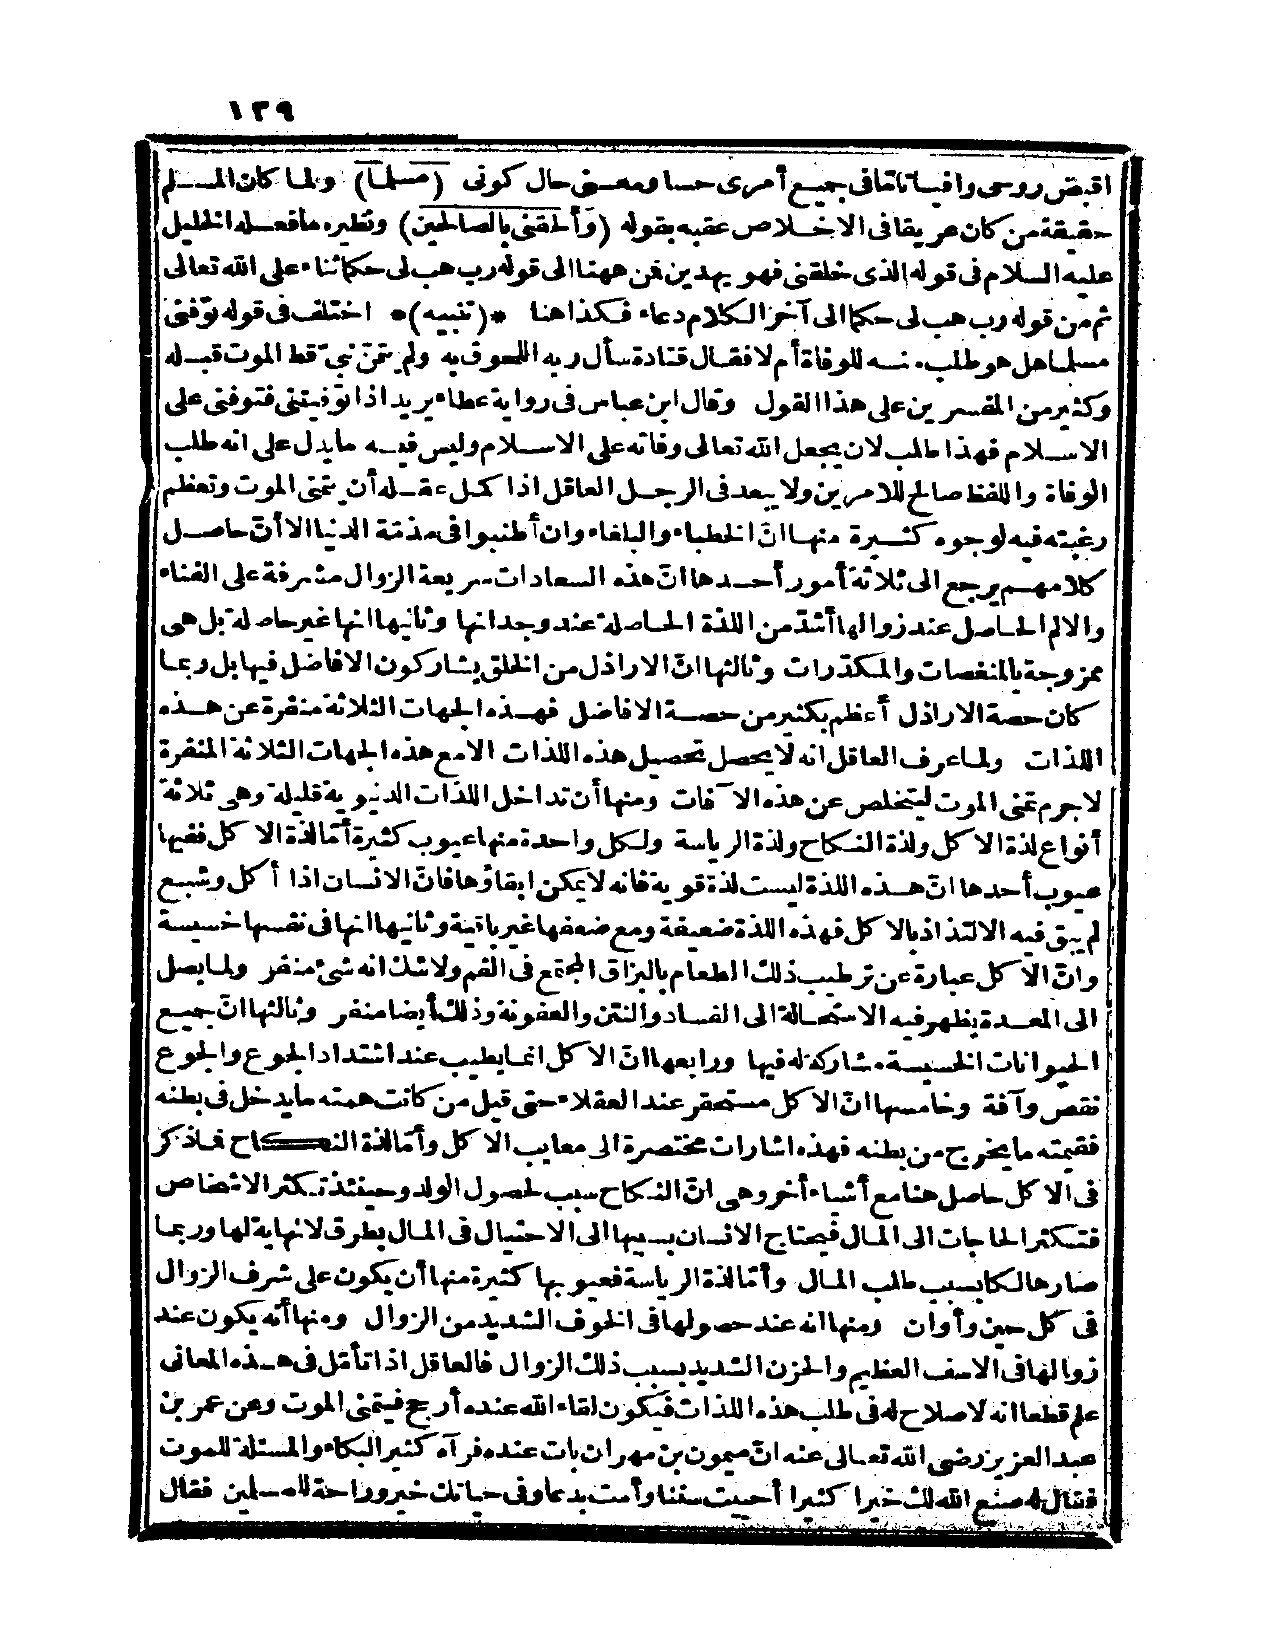 ١٣٩
اقبض روحى وافيا تاما فى جميع أمرى حسا ومعنى حال كونى (مسلما) ولما كان المسلم
حقيقة من كان عريقا فى الاخلاص عقبه بقوله (وألحقنى بالصالحين) ونظيره ما فعله الخليل
عليه السلام فى قوله الذى خلقنى فهو يهدين فن ههنا الى قوله رب هب لى حكما ثناء على الله تعالى
ثم من قوله رب هب لى حكما الى آخر الكلام دعاء فكذا هنا *(تنبيه)* اختلف فى قوله توفنى
مسلما هل هو طلب منه للوفاة أم لا فقال قتادة سأل ربه اللحوق به ولم يتمنّ نبىّ قط الموت قبله
وكثير من المفسرين على هذا القول وقال ابن عباس فى رواية عطاء يريد اذا توفيتنى فتوفنى على
الاسلام فهذا طلب لان يجعل الله تعالى وفاته على الاسلام وليس فيه ما يدل على انه طلب
الوفاة واللفظ صالح للامرين ولا يبعد فى الرجل العاقل اذا كمل عقله أن يتمنى الموت وتعظم
رغبته فيه لوجوه كثيرة منها انّ الخطباء والبلغاء وان أطنبوا فى مذمّة الدنيا الا أنّ حاصل
كلامهم يرجع الى ثلاثة أمور أحدها انّ هذه السعادات سريعة الزوال مشرفة على الفناء
والالم الحاصل عند زوالها أشدّ من اللذة الحاصلة عند وجدانها وثانيها انها غير حاصلة بل هى
ممزوجة بالمنغصات والمكدّرات وثالثها انّ الاراذل من الخلق يشاركون الافاضل فيها بل ربما
كان حصة الاراذل أعظم بكثير من حصة الافاضل فهذه الجهات الثلاثة منفرة عن هذه
اللذات ولما عرف العاقل انه لا يحصل تحصيل هذه اللذات الا مع هذه الجهات الثلاثة المنفرة
لا جرم تمنى الموت ليتخلص عن هذه الآفات ومنها أن تداخل اللذات الدنيوية قليلة وهى ثلاثة
أنواع لذة الاكل ولذة النكاح ولذة الرياسة ولكل واحدة منها عيوب كثيرة أمّا لذة الاكل ففيها
عيوب أحدها انّ هذه اللذة ليست لذة قوية فانه لا يمكن ابقاؤها فانّ الانسان اذا أكل وشبع
لم يبق فيه الالتذاذ بالاكل فهذه اللذة ضعيفة ومع ضعفها غير باقية وثانيها انها فى نفسها خسيسة
وانّ الاكل عبارة عن ترطيب ذلك الطعام بالبزاق المجتمع فى الفم ولا شك انه شئ منفر ولما يصل
الى المعدة يظهر فيه الاستحالة الى الفساد والنتن والعفونة وذلك أيضا منفر وثالثها انّ جميع
الحيوانات الخسيسة مشاركة له فيها ورابعها انّ الاكل انما يطيب عند اشتداد الجوع والجوع
نقص وآفة وخامسها انّ الاكل مستحقر عند العقلاء حتى قيل من كانت همته ما يدخل فى بطنه
فقيمته ما يخرج من بطنه فهذه اشارات مختصرة الى معايب الاكل وأمّا لذة النكاح فماذكر
فى الاكل حاصل هنا مع أشياء أخر وهى انّ النكاح سبب لحصول الولد وحينئذ تكثر الاشخاص
فتكثر الحاجات الى المال فيحتاج الانسان بسببها الى الاحتيال فى المال بطرق لا نهاية لها وربما
صار هالكا بسبب طلب المال وأمّا لذة الرياسة فعيوبها كثيرة منها أن يكون على شرف الزوال
فى كل حين وأوان ومنها انه عند حصولها فى الخوف الشديد من الزوال ومنها أنه يكون عند
زوالها فى الاسف العظيم والحزن الشديد بسبب ذلك الزوال فالعاقل اذا تأمّل فى هذه المعانى
علم قطعا انه لا صلاح له فى طلب هذه اللذات فيكون لقاء الله عنده أرجح فيتمنى الموت وعن عمر بن
عبد العزيز رضى الله تعالى عنه انّ ميمون بن مهران بات عنده فرآه كثير البكاء والمسئلة للموت
فقال له صنع الله لك خيرا كثيرا أحييت سننا وأمت بدعا وفى حياتك خير وراحة للمسلمين فقال